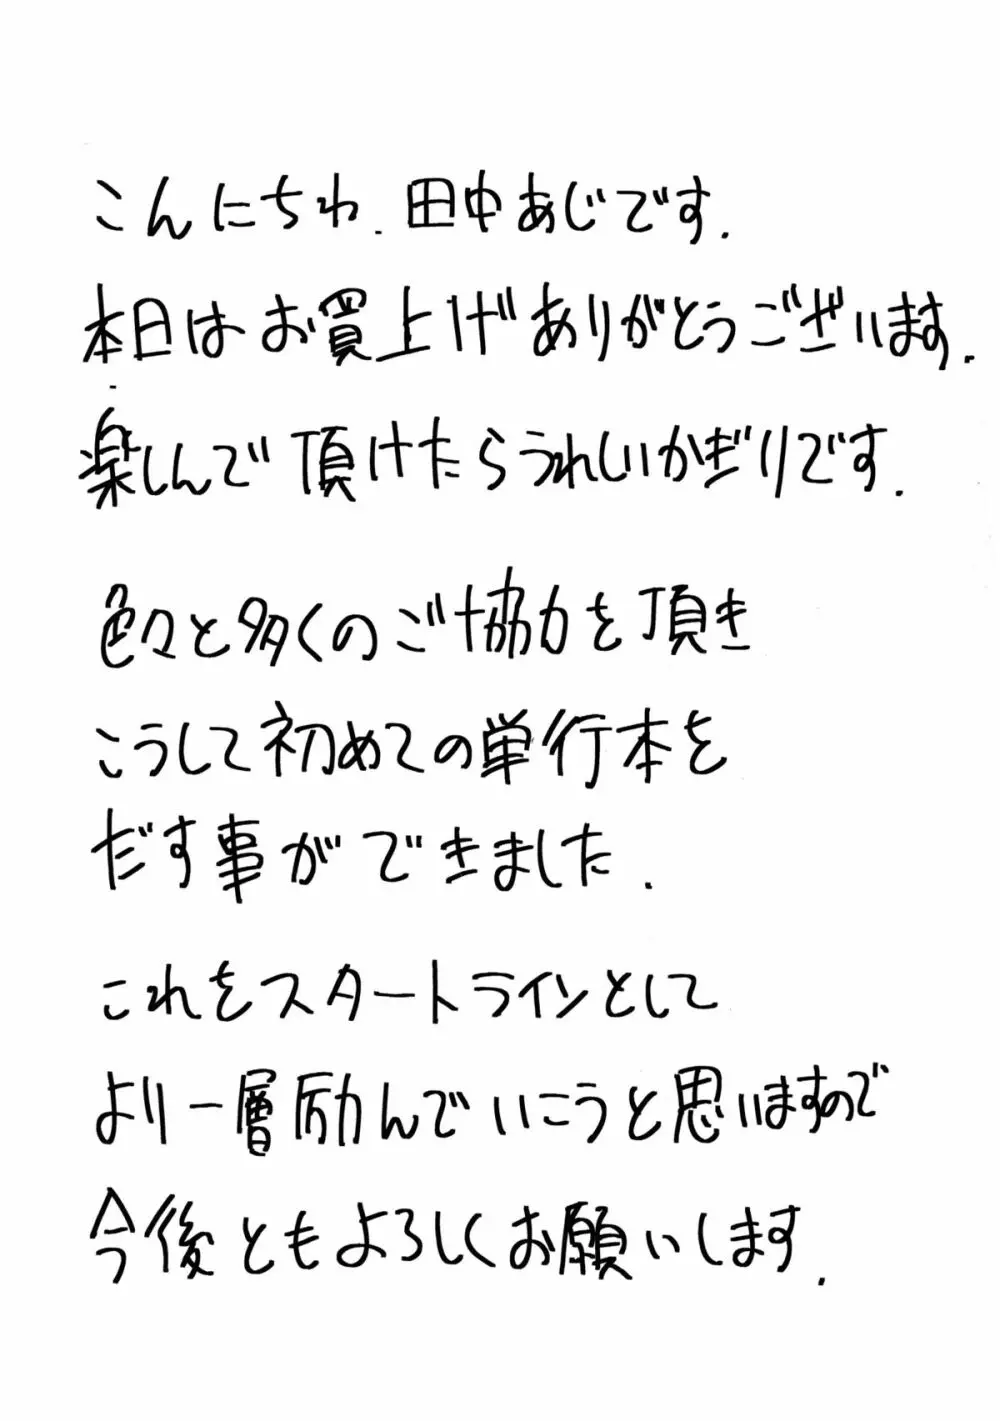 こんにちわ.田中あじです.
本日はお買上げありがとうございます.
楽しんで頂けたらうれしいかぎりです.
色々と多くのご協力を頂き
こうして初めての単行本を
だす事ができました.
これをスタートラインとして
より一層励んでいこうと思いますので
今後ともよろしくお願いします.